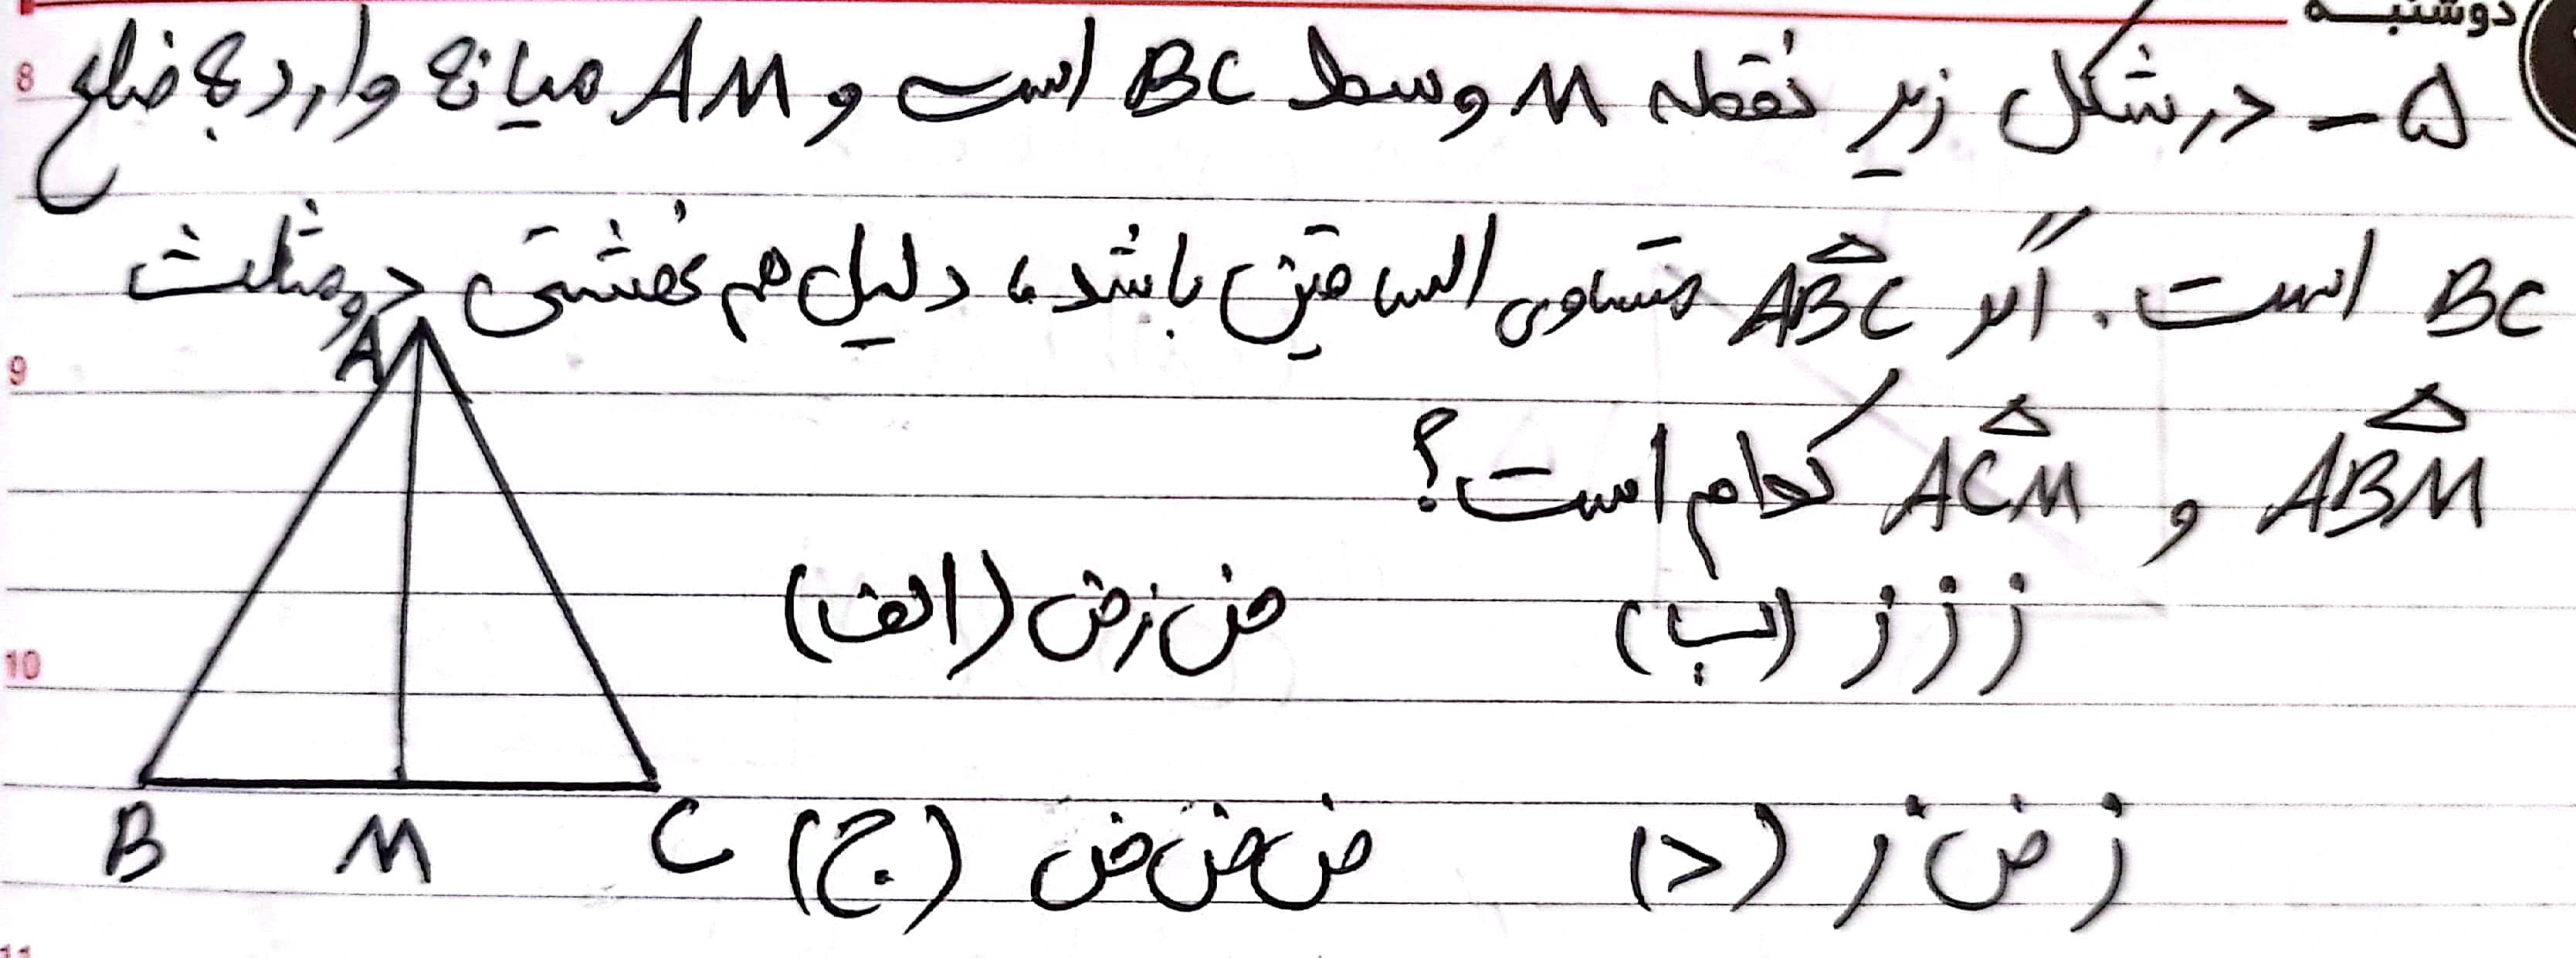 دوشنبه
8
۵ - در شکل زیر نقطه M وسط BC است و AM میانه وارد به ضلع
BC است. اگر ABC متساوی الساقین باشد، دلیل هم نهشتی دو مثلث
9
ABM و ACM کدام است؟
A
ض ز ض (الف)
ز ز ز (ب)
10
ض ض ض (ج)
ز ض ز (د)
B M C
11